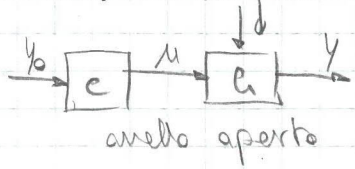 y₀ C u G y
anello aperto